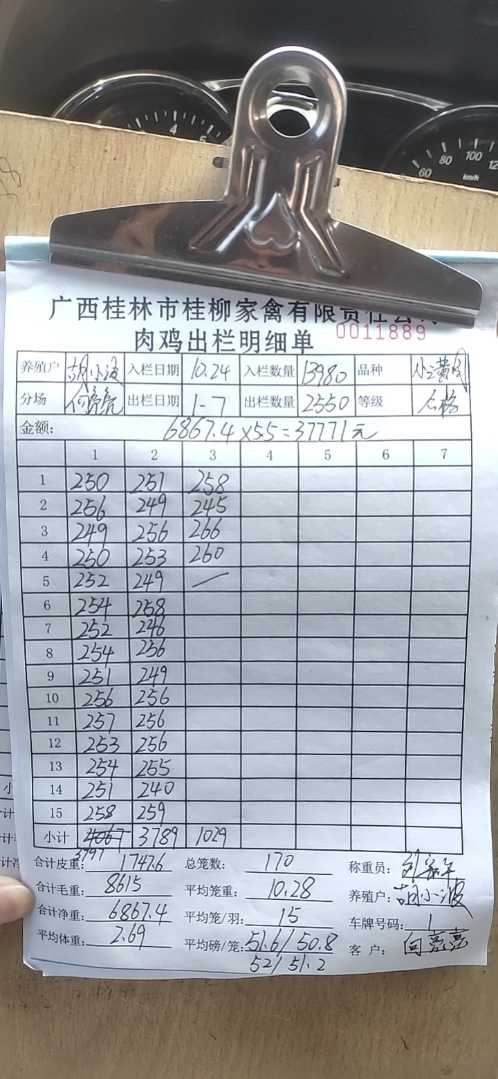 广西桂林市桂柳家禽有限责任公司
肉鸡出栏明细单 0011889
养殖户 胡小波 入栏日期 10.24 入栏数量 13980 品种
分场 何亮亮 出栏日期 1-7 出栏数量 2550 等级 合格
金额: 6867.4×55=37771元
1 2 3 4 5 6 7
1 250 251 258
2 256 249 245
3 249 256 266
4 250 253 260
5 252 249 —
6 254 258
7 252 246
8 254 256
9 251 249
10 256 256
11 257 256
12 253 256
13 254 255
14 251 240
15 258 259
小计 4067 3789 1029
3797
合计皮重: 1747.6 总笼数: 170 称重员:
合计毛重: 8615 平均笼重: 10.28 养殖户: 胡小波
合计净重: 6867.4 平均笼/羽: 15 车牌号码: 1
平均体重: 2.69 平均磅/笼: 51.6/50.8 客户: 何亮亮
52/51.2
km/h
4 5
60 80 100